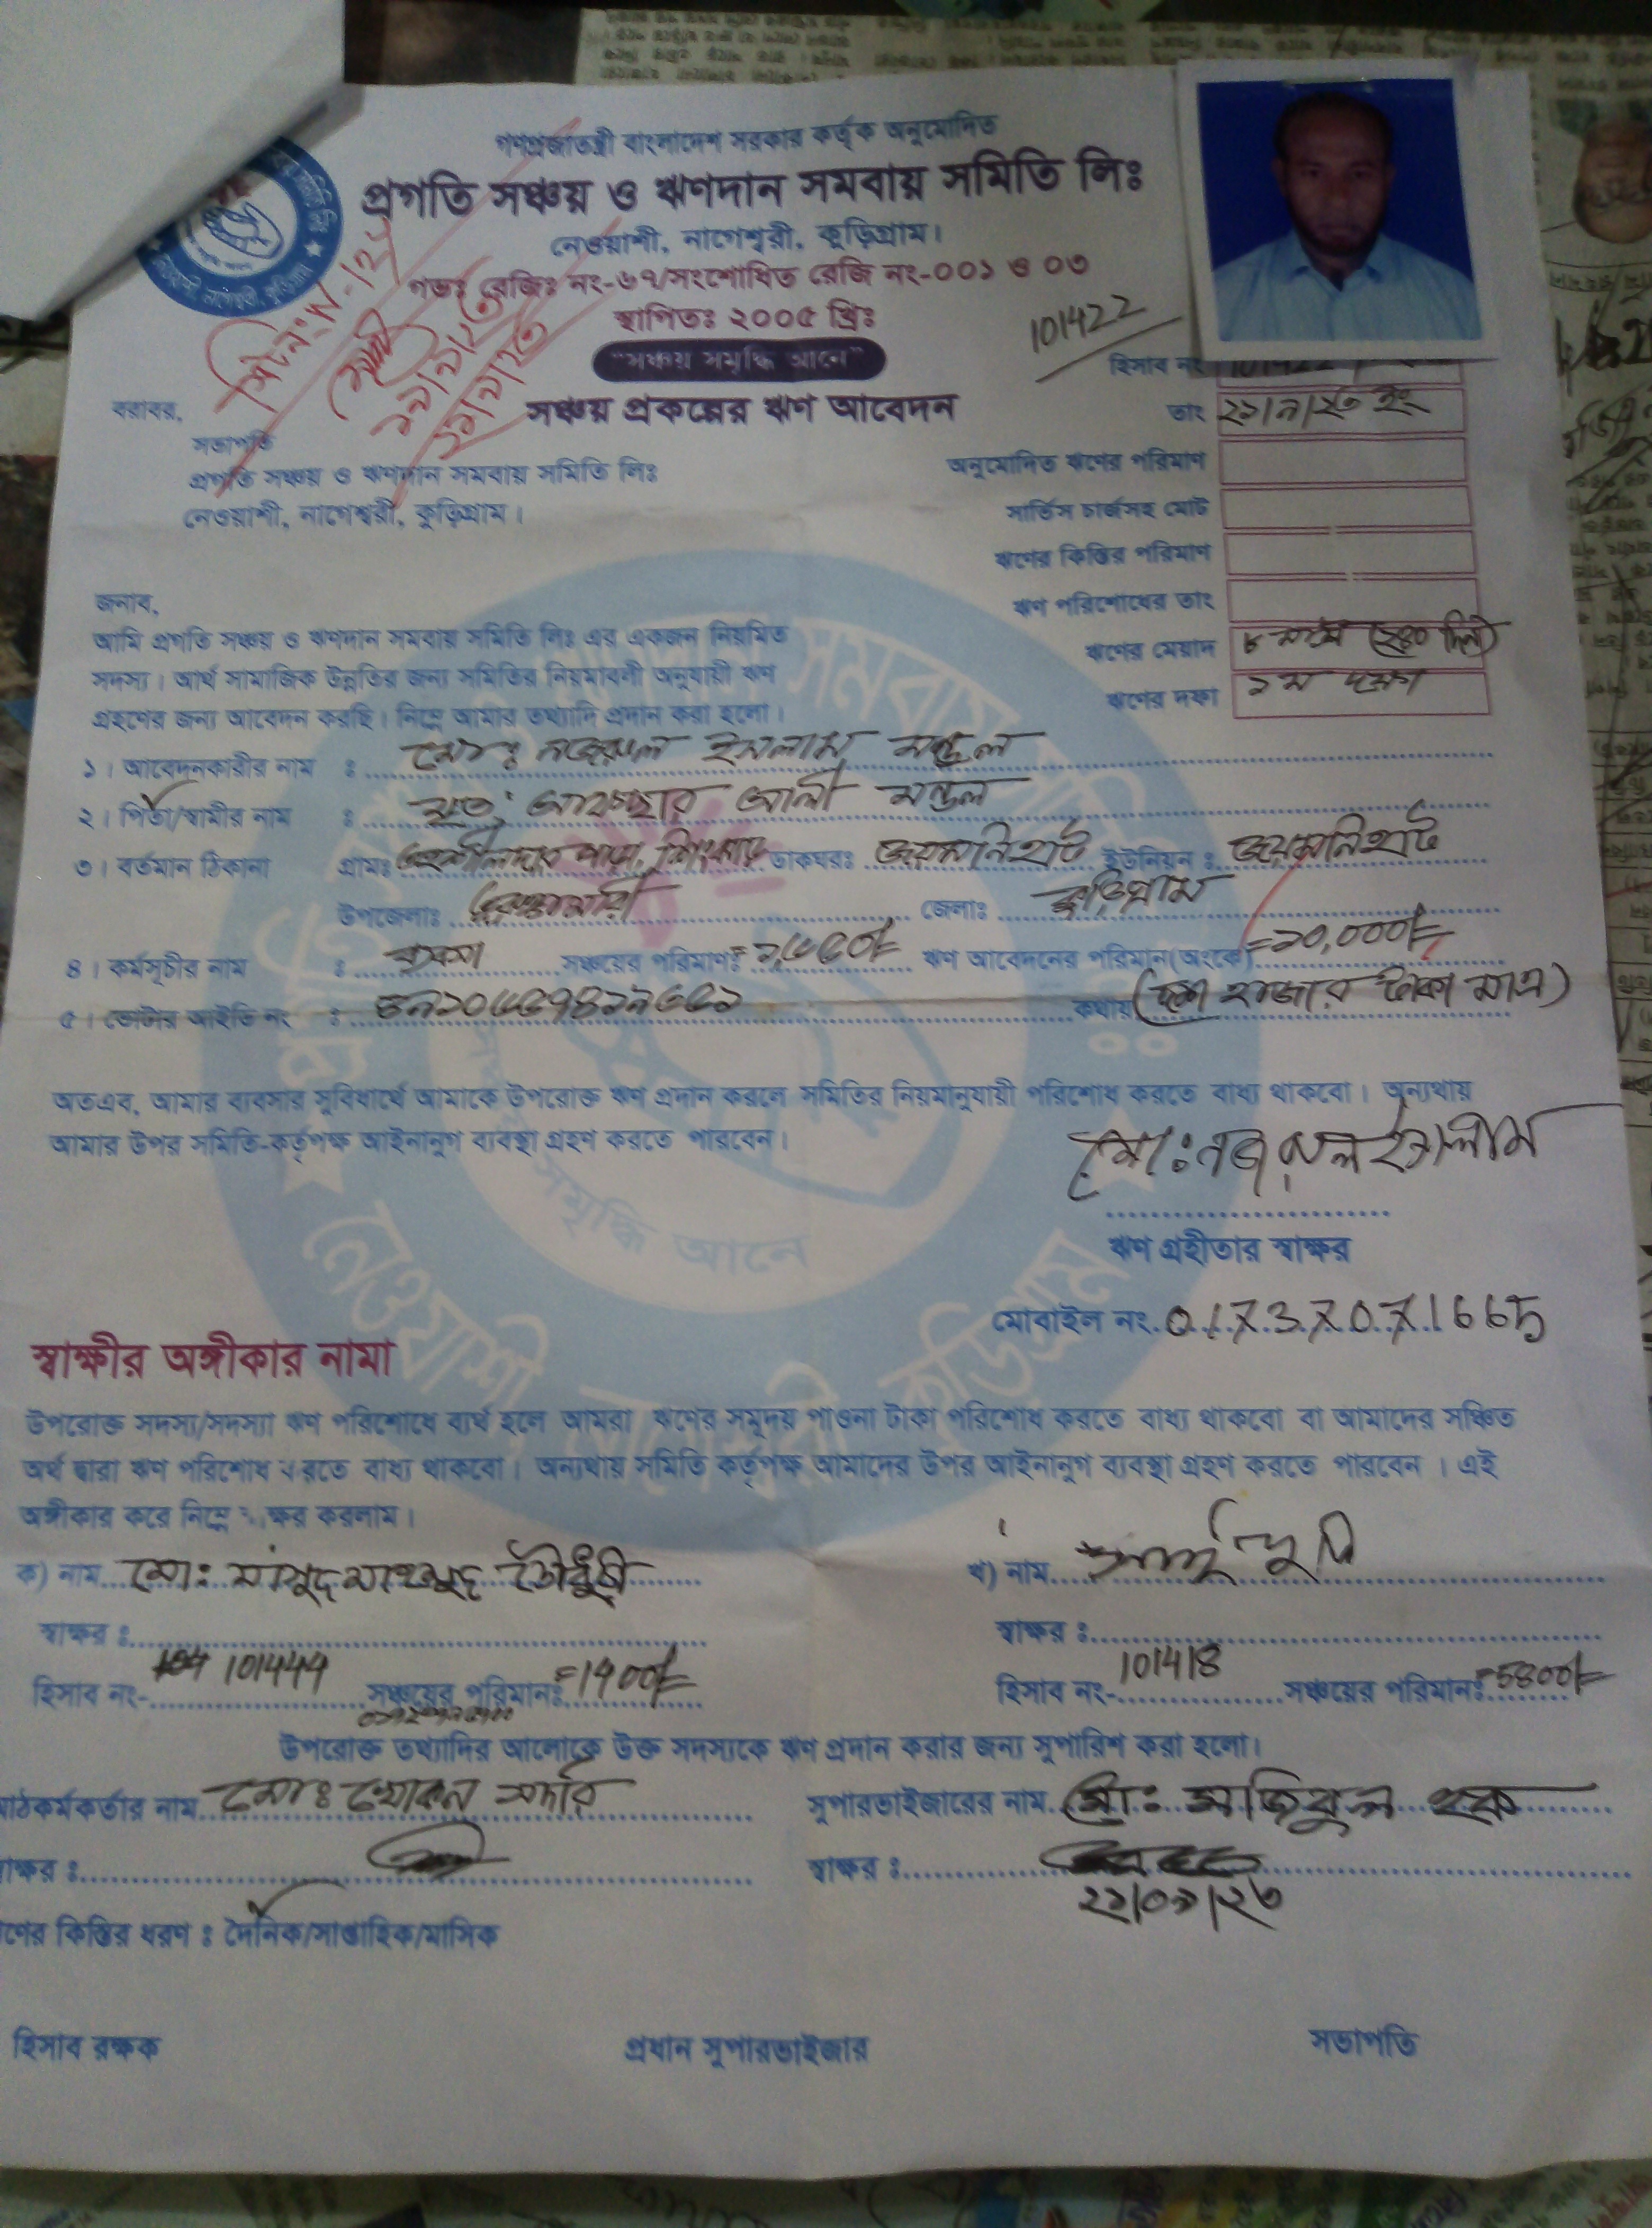 গণপ্রজাতন্ত্রী বাংলাদেশ সরকার কর্তৃক অনুমোদিত
প্রগতি সঞ্চয় ও ঋণদান সমবায় সমিতি লিঃ
নেওয়াশী, নাগেশ্বরী, কুড়িগ্রাম।
গভঃ রেজিঃ নং-৬৭/সংশোধিত রেজি নং-০০১ ও ০৩
স্থাপিতঃ ২০০৫ খ্রিঃ
101422
"সঞ্চয় সমৃদ্ধি আনে"
হিসাব নং 101422
বরাবর,
সঞ্চয় প্রকল্পের ঋণ আবেদন
তাং ২১/৯/২৩ ইং
সভাপতি
প্রগতি সঞ্চয় ও ঋণদান সমবায় সমিতি লিঃ
নেওয়াশী, নাগেশ্বরী, কুড়িগ্রাম।
অনুমোদিত ঋণের পরিমাণ
সার্ভিস চার্জসহ মোট
ঋণের কিস্তির পরিমাণ
ঋণ পরিশোধের তাং
ঋণের মেয়াদ ৮ মাস (২৪০ দিন)
ঋণের দফা ১ম দফা
জনাব,
আমি প্রগতি সঞ্চয় ও ঋণদান সমবায় সমিতি লিঃ এর একজন নিয়মিত
সদস্য। আর্থ সামাজিক উন্নতির জন্য সমিতির নিয়মাবলী অনুযায়ী ঋণ
গ্রহণের জন্য আবেদন করছি। নিম্নে আমার তথ্যাদি প্রদান করা হলো।
১। আবেদনকারীর নাম : মোঃ নজরুল ইসলাম মন্ডল
২। পিতা/স্বামীর নাম : মৃত: আলী মন্ডল
৩। বর্তমান ঠিকানা গ্রামঃ ডাকঘরঃ জয়মনিরহাট ইউনিয়ন : জয়মনিরহাট
উপজেলাঃ ভুরুঙ্গামারী জেলাঃ কুড়িগ্রাম
৪। কর্মসূচীর নাম : সঞ্চয়ের পরিমাণঃ ঋণ আবেদনের পরিমান(অংকে) =১০,০০০/=
৫। ভোটার আইডি নং : কথায় (দশ হাজার টাকা মাত্র)
অতএব, আমার ব্যবসার সুবিধার্থে আমাকে উপরোক্ত ঋণ প্রদান করলে সমিতির নিয়মানুযায়ী পরিশোধ করতে বাধ্য থাকবো। অন্যথায়
আমার উপর সমিতি-কর্তৃপক্ষ আইনানুগ ব্যবস্থা গ্রহণ করতে পারবেন।
মোঃ নজরুল ইসলাম
ঋণ গ্রহীতার স্বাক্ষর
মোবাইল নং. 01737071665
স্বাক্ষীর অঙ্গীকার নামা
উপরোক্ত সদস্য/সদস্যা ঋণ পরিশোধে ব্যর্থ হলে আমরা ঋণের সমূদয় পাওনা টাকা পরিশোধ করতে বাধ্য থাকবো বা আমাদের সঞ্চিত
অর্থ দ্বারা ঋণ পরিশোধ করতে বাধ্য থাকবো। অন্যথায় সমিতি কর্তৃপক্ষ আমাদের উপর আইনানুগ ব্যবস্থা গ্রহণ করতে পারবেন । এই
অঙ্গীকার করে নিম্নে স্বাক্ষর করলাম।
ক) নাম মোঃ মাসুদ মাহমুদ চৌধুরী
খ) নাম
স্বাক্ষর :
স্বাক্ষর :
হিসাব নং- 101449 সঞ্চয়ের পরিমানঃ =1900/=
হিসাব নং- 101418 সঞ্চয়ের পরিমানঃ =5800/=
উপরোক্ত তথ্যাদির আলোকে উক্ত সদস্যকে ঋণ প্রদান করার জন্য সুপারিশ করা হলো।
মাঠকর্মকর্তার নাম মোঃ খোকন সর্দার
সুপারভাইজারের নাম মোঃ মজিবুল হক
স্বাক্ষর :
স্বাক্ষর :
২১/০৯/২৩
ঋণের কিস্তির ধরণ : দৈনিক/সাপ্তাহিক/মাসিক
হিসাব রক্ষক
প্রধান সুপারভাইজার
সভাপতি